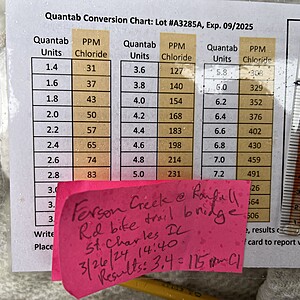 Quantab Conversion Chart: Lot #A3285A, Exp. 09/2025
Quantab Units PPM Chloride Quantab Units PPM Chloride Quantab Units PPM Chloride
1.4 31 3.6 127 5.8 308
1.6 37 3.8 140 6.0 329
1.8 43 4.0 154 6.2 352
2.0 50 4.2 168 6.4 376
2.2 57 4.4 183 6.6 402
2.4 65 4.6 198 6.8 430
2.6 74 4.8 214 7.0 459
2.8 83 5.0 231 7.2 491
Ferson Creek @ Randall
Rd bike trail bridge
St. Charles IL
3/26/24 14:40
Results: 3.4 = 115 ppm Cl
606
Write
results o
Place
card to repor